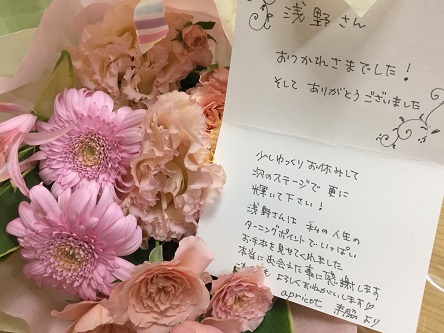 浅野さん
おつかれさまでした！
そして ありがとうございました
少しゆっくり お休みして
次のステージで 更に
輝いて下さい！
浅野さんは 私の人生の
ターニングポイントで いっぱい
お手本を見せてくれました
本当に出会えた事に感謝します
よろしくおねがいします♡
apricot より